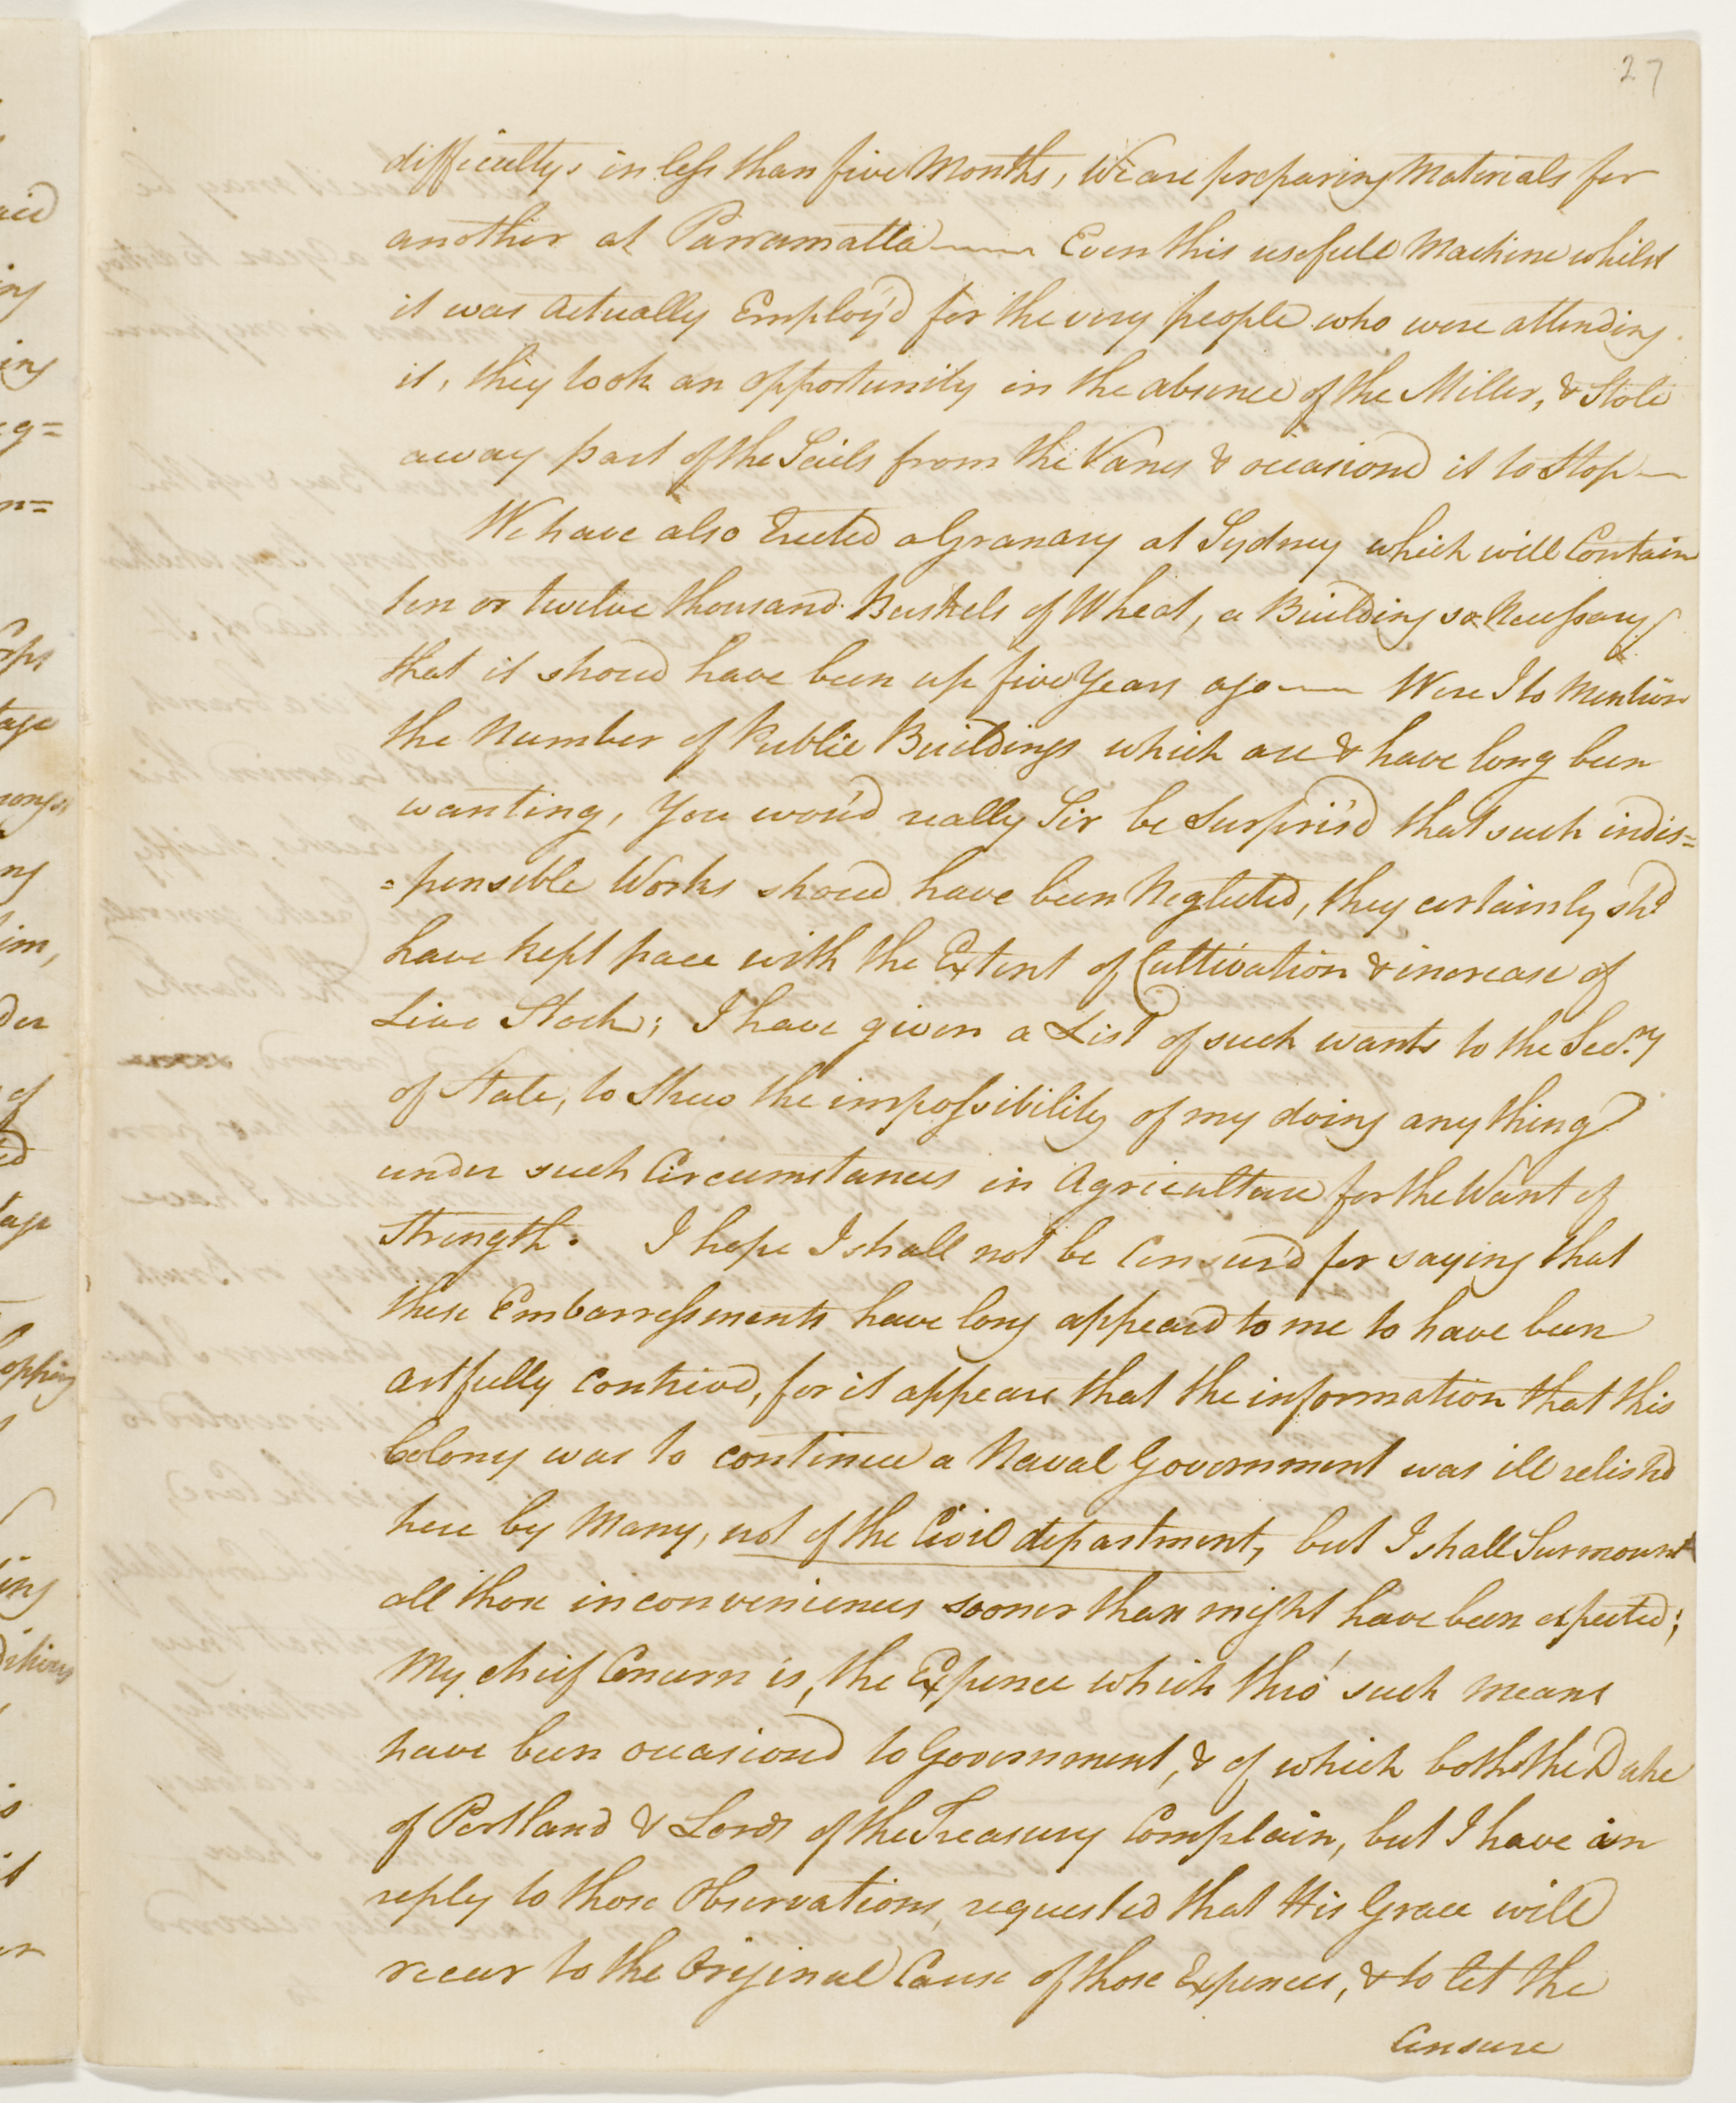 27
difficultys in less than five Months, We are preparing Materials for
another at Parramatta —— Even this usefull Machine whilst
it was actually Employ'd for the very people who were attending
it, they took an opportunity in the absence of the Miller, & Stole
away part of the Sails from the Vanes & occasiond it to Stop —
We have also Erected a Granary at Sydney which will Contain
ten or twelve thousand Bushels of Wheat, a Building so Necessary
that it shoud have been up five Years ago —— Were I to Mention
the Number of Public Buildings which are & have long been
wanting, You wou'd really Sir be Surpris'd that such indis=
=pensible Works shoud have been Neglected, they certainly shd
have kept pace with the Extent of Cultivation & increase of
Live Stock; I have given a List of such wants to the Secry
of State, to Shew the impossibility of my doing any thing
under such Circumstances in Agriculture for the Want of
Strength. I hope I shall not be Censur'd for saying that
these Embarressments have long appeard to me to have been
artfully contrivd, for it appears that the information that this
Colony was to continue a Naval Government was ill relish'd
here by Many, not of the Civil department, but I shall Surmount
all those inconveniences sooner than might have been expected;
My chief Concern is, the Expence which thro' such means
have been occasiond to Government, & of which both the Duke
of Portland & Lords of the Treasury Complain, but I have in
reply to those Observations, requested that His Grace will
recur to the Original Cause of those Expences, & to let the
Censure